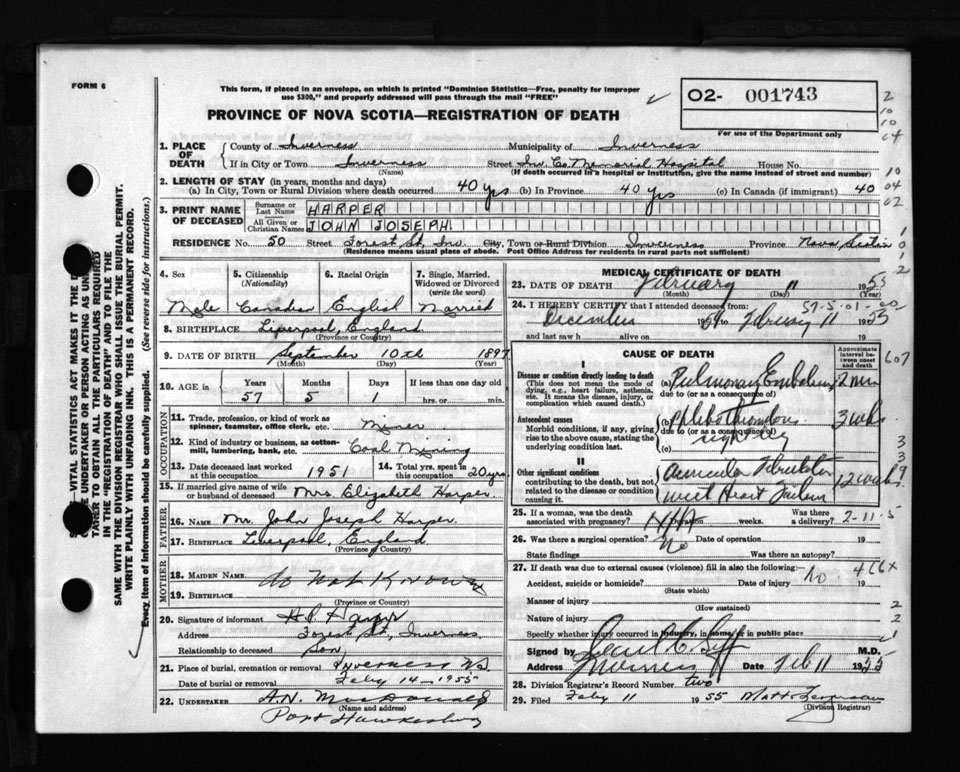 FORM 6
This form, if placed in an envelope, on which is printed "Dominion Statistics—Free, penalty for improper
use $300," and properly addressed will pass through the mail "FREE"
O2- 001743
For use of the Department only
2
10
10
04
PROVINCE OF NOVA SCOTIA—REGISTRATION OF DEATH
1. PLACE OF DEATH County of Inverness Municipality of Inverness
If in City or Town Inverness Street Inv. Co. Memorial Hospital House No.
(Name) (If death occurred in a hospital or institution, give the name instead of street and number)
10
04
02
2. LENGTH OF STAY (in years, months and days)
(a) In City, Town or Rural Division where death occurred 40 yrs (b) In Province 40 yrs (c) In Canada (if immigrant) 40
3. PRINT NAME OF DECEASED
Surname or Last Name HARPER
All Given or Christian Names JOHN JOSEPH
RESIDENCE No. 50 Street Forest St, Inv. City, Town or Rural Division Inverness Province Nova Scotia
(Residence means usual place of abode. Post Office Address for residents in rural parts not sufficient)
4. Sex 5. Citizenship (Nationality) 6. Racial Origin 7. Single, Married, Widowed or Divorced (write the word)
Male Canadian English Married
8. BIRTHPLACE Liverpool, England
(Province or Country)
9. DATE OF BIRTH September 10th 1897
(Month) (Day) (Year)
10. AGE in Years Months Days If less than one day old
57 5 1 hrs. or min.
OCCUPATION
11. Trade, profession, or kind of work as spinner, teamster, office clerk, etc. Miner
12. Kind of industry or business, as cotton-mill, lumbering, bank, etc. Coal Mining
13. Date deceased last worked at this occupation 1951 14. Total yrs. spent in this occupation 20 yrs.
15. If married give name of wife or husband of deceased Mrs. Elizabeth Harper.
FATHER
16. NAME Mr. John Joseph Harper.
17. BIRTHPLACE Liverpool, England
(Province or Country)
MOTHER
18. MAIDEN NAME Do Not Know
19. BIRTHPLACE
(Province or Country)
20. Signature of informant Harper
Address Forest St, Inverness.
Relationship to deceased Son,
21. Place of burial, cremation or removal Inverness N.S.
Date of burial or removal Feby 14—1955
22. UNDERTAKER A.N. MacDonald
(Name and address)
Port Hawkesbury
MEDICAL CERTIFICATE OF DEATH
23. DATE OF DEATH February 11 1955
(Month) (Day) (Year)
24. I HEREBY CERTIFY that I attended deceased from:
December 1954 to February 11 1955
and last saw h alive on 19
CAUSE OF DEATH
Approximate interval between onset and death
607
I
Disease or condition directly leading to death (This does not mean the mode of dying, e.g., heart failure, asthenia, etc. It means the disease, injury, or complication which caused death.)
(a) Pulmonary Embolism 2 min
due to (or as a consequence of)
Antecedent causes
Morbid conditions, if any, giving rise to the above cause, stating the underlying condition last.
(b) Phlebothrombosis 3 wks
due to (or as a consequence of)
right leg
(c)
II
Other significant conditions contributing to the death, but not related to the disease or condition causing it.
Auricular Fibrillation
with Heart Failure 12 weeks
25. If a woman, was the death associated with pregnancy? weeks. Was there a delivery? 2-11-5
26. Was there a surgical operation? No Date of operation 19
State findings Was there an autopsy?
27. If death was due to external causes (violence) fill in also the following: No 466X
Accident, suicide or homicide? Date of injury 19
(State which)
Manner of injury
(How sustained)
Nature of injury
Specify whether injury occurred in industry, in home, or in public place
Signed by M.D.
Address Inverness Date Feb 11 1955
28. Division Registrar's Record Number two
29. Filed Feby 11 1955
(Division Registrar)
VITAL STATISTICS ACT MAKES IT THE
UNDERTAKER OR PERSON ACTING AS UNDER-
TAKER TO OBTAIN ALL THE PARTICULARS REQUIRED
IN THE "REGISTRATION OF DEATH" AND TO FILE THE
SAME WITH THE DIVISION REGISTRAR WHO SHALL ISSUE THE BURIAL PERMIT.
WRITE PLAINLY WITH UNFADING INK. THIS IS A PERMANENT RECORD.
Every item of Information should be carefully supplied. (See reverse side for instructions.)